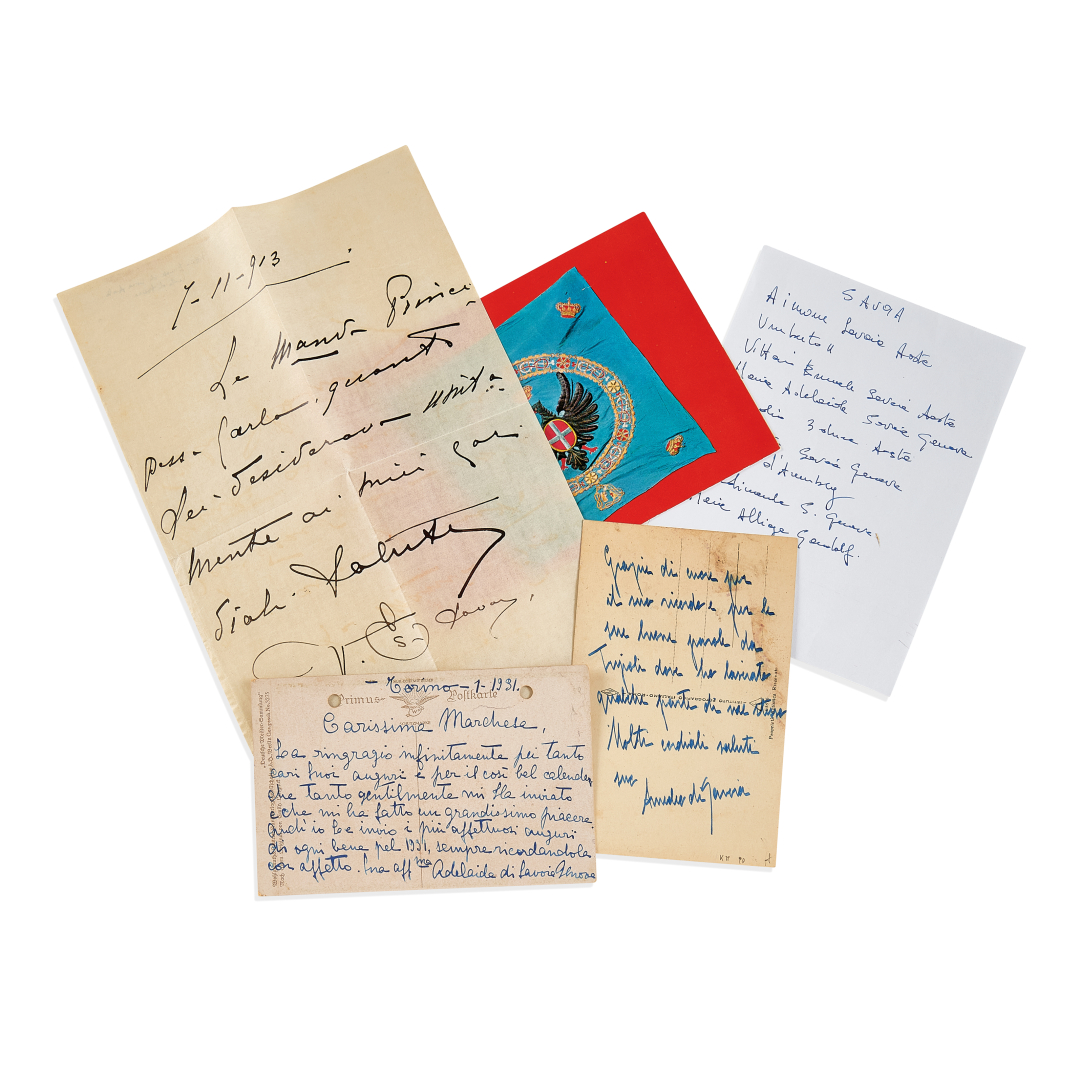 7-11-913
Le Manda Princi
pessa Carla, quanto
Lei desiderava unita
mente ai miei cor
diali Saluti
SAVOIA
Aimone Savoia Aosta
Umberto II
Vittorio Emanuele Savoia Aosta
Maria Adelaide Savoia Genova
3 duca Aosta
Savoia Genova
S. Genova
Maria
Grazie di cuore per
il suo ricordo e per le
sue buone parole da
Tripoli dove ho lasciato
qualche parte di me stesso
Molti cordiali saluti
suo
Amedeo di Savoia
Primus Postkarte
- Torino - 1 - 1931.
Carissima Marchesa,
La ringrazio infinitamente pei tanto
cari suoi auguri e per il così bel calendar
che tanto gentilmente mi ha inviato
e che mi ha fatto un grandissimo piacere
io Le invio i più affettuosi auguri
di ogni bene pel 1931, sempre ricordandola
con affetto. Sua aff.ma Adelaide di Savoia Genova